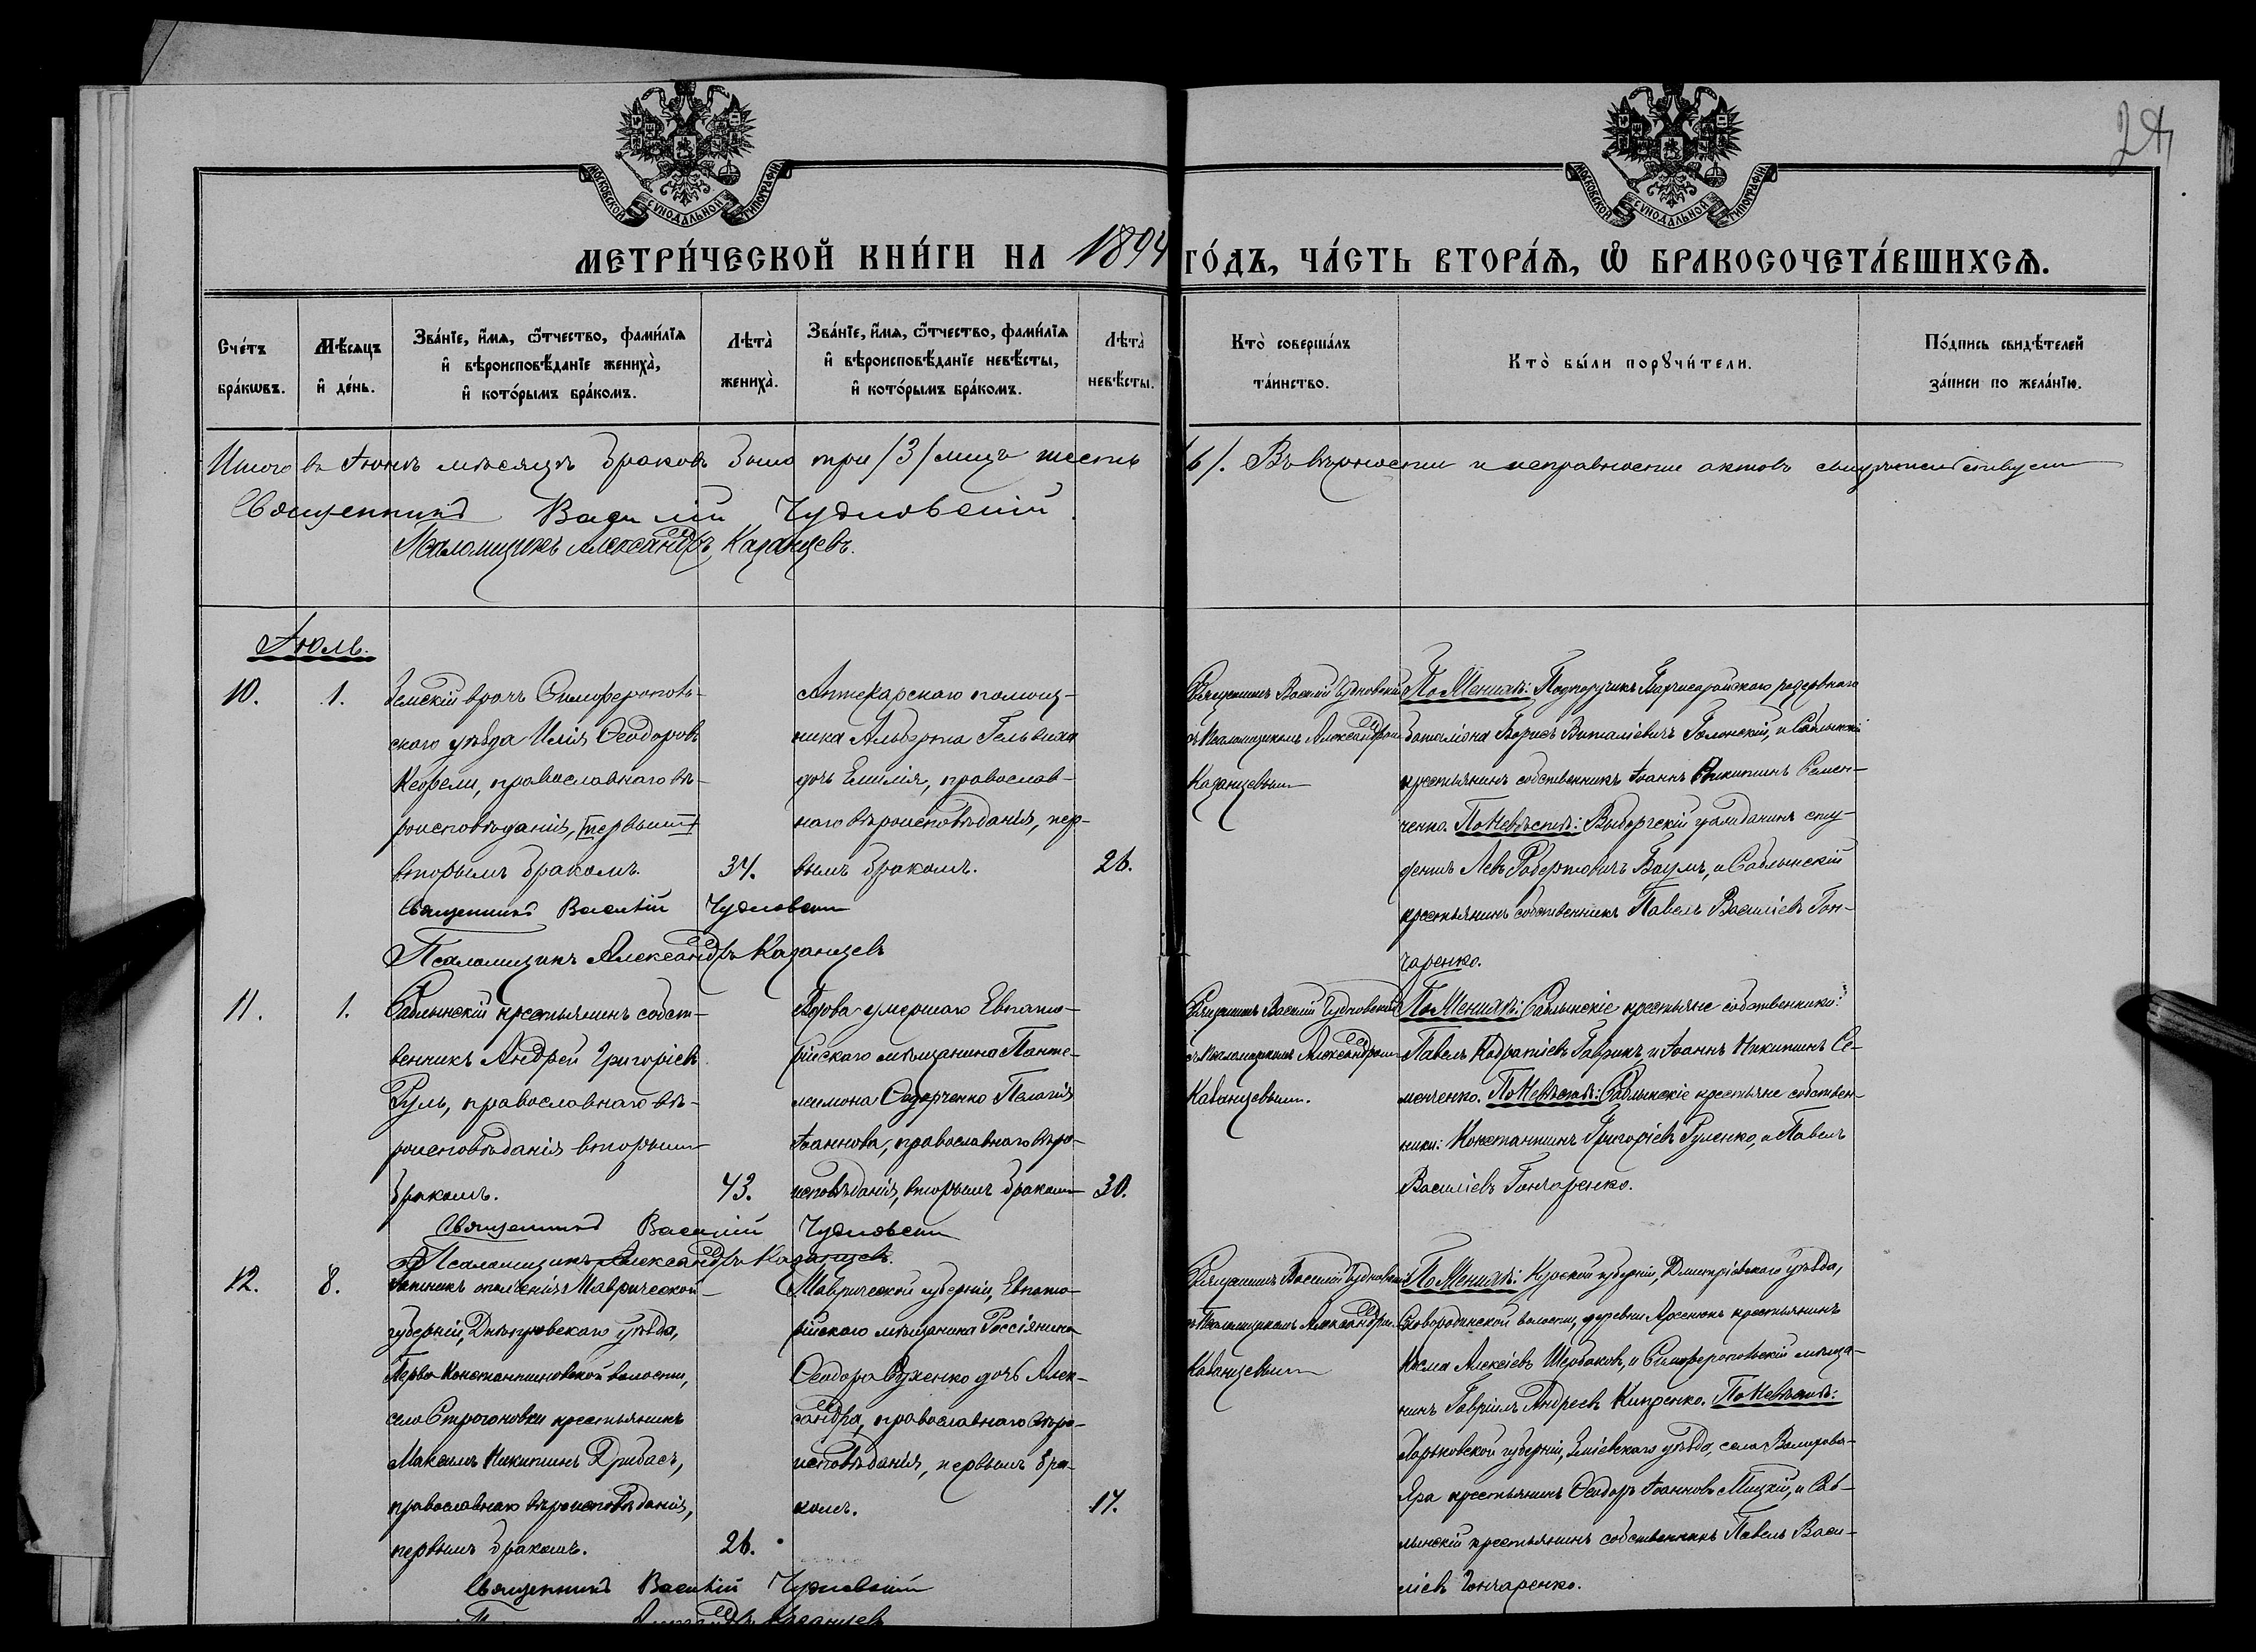 24
МОСКОВСКОЙ СѴНОДАЛЬНОЙ ТИПОГРАФІИ
МОСКОВСКОЙ СѴНОДАЛЬНОЙ ТИПОГРАФІИ
МЕТРИ́ЧЕСКОЙ КНИ́ГИ НА 1894 ГО́ДЪ, ЧА́СТЬ ВТОРА́Я, Ѡ БРАКОСОЧЕТА́ВШИХСЯ.
Сче́тъ
бра́кѡвъ.
Мѣ́сяцъ
и҆ де́нь.
Зва́нїе, и҆́мя, ѻ҆́тчество, фами́лїя
и҆ вѣроисповѣ́данїе жениха̀,
и҆ кото́рымъ бра́комъ.
Лѣта̀
жениха̀.
Зва́нїе, и҆́мя, ѻ҆́тчество, фами́лїя
и҆ вѣроисповѣ́данїе невѣ́сты,
и҆ кото́рымъ бра́комъ.
Лѣта̀
невѣ́сты.
Кто̀ соверша́лъ
та́инство.
Кто̀ бы́ли порꙋчи́тели.
По́дпись свидѣ́телей
за́писи по жела́нїю.
Итого въ Іюнѣ мѣсяцѣ браковъ было три /3/ лицъ шесть /6/. Въ вѣрности и исправности актовъ свидѣтельствуемъ
Священникъ Василій Чудновскій
Псаломщикъ Александръ Казанцевъ.
Іюль.
10.
1.
Земскій врачъ Симферополь-
скаго уѣзда Илія Ѳеодоровъ
Кефели, православнаго вѣ-
роисповѣданія, [первымъ]
вторымъ бракомъ.
34.
Аптекарскаго помощ-
ника Альберта Гельвиха
дочь Емилія, православ-
наго вѣроисповѣданія, пер-
вымъ бракомъ.
26.
Священникъ Василій Чудновскій
съ Псаломщикомъ Александромъ
Казанцевымъ
По Женихѣ: Подпоручикъ Бахчисарайскаго резервнаго
баталіона Борисъ Виталіевичъ Голонскій, и Саблынскій
крестьянинъ собственникъ Іоаннъ Никитинъ Семен-
ченко. По Невѣстѣ: Выборгскій гражданинъ сту-
дентъ Левъ Робертовичъ Баумъ, и Саблынскій
крестьянинъ собственникъ Павелъ Василіевъ Гон-
чаренко.
Священникъ Василій Чудновскій
Псаломщикъ Александръ Казанцевъ
11.
1.
Саблынскій крестьянинъ собст-
венникъ Андрей Григоріевъ
Руль, православнаго вѣ-
роисповѣданія вторымъ
бракомъ.
43.
Вдова умершаго Евпато-
рійскаго мѣщанина Панте-
леимона Федорченко Пелагія
Іоаннова, православнаго вѣро-
исповѣданія, вторымъ бракомъ
30.
Священникъ Василій Чудновскій
съ Псаломщикомъ Александромъ
Казанцевымъ.
По Женихѣ: Саблынскіе крестьяне собственники:
Павелъ Кодратіевъ Гаврикъ, и Іоаннъ Никитинъ Се-
менченко. По Невѣстѣ: Саблынскіе крестьяне собствен-
ники: Константинъ Григоріевъ Руленко, и Павелъ
Василіевъ Гончаренко.
Священникъ Василій Чудновскій
Псаломщикъ Александръ Казанцевъ.
12.
8.
Ратникъ ополченія Таврической
губерніи, Днѣпровскаго уѣзда,
Перво Константиновской волости,
села Строгоновки крестьянинъ
Максимъ Никитинъ Дрибасъ,
православнаго вѣроисповѣданія,
первымъ бракомъ.
26.
Таврической губерніи, Евпато-
рійскаго мѣщанина Россіянина
Ѳеодора Руженко дочь Алек-
сандра, православнаго вѣро-
исповѣданія, первымъ бра-
комъ.
17.
Священникъ Василій Чудновскій
съ Псаломщикомъ Александромъ
Казанцевымъ
По Женихѣ: Курской губерніи, Дмитріевскаго уѣзда,
Сковородинской волости, деревни Арсеновъ крестьянинъ
Косма Алексіевъ Щербаковъ, и Симферопольскій мѣща-
нинъ Гавріилъ Андреевъ Кипренко. По Невѣстѣ:
Харьковской губерніи, Зміевскаго уѣзда, села Волирова-
Яра крестьянинъ Ѳеодоръ Іоанновъ Мицкій, и Саб-
лынскій крестьянинъ собственникъ Павелъ Васи-
ліевъ Гончаренко.
Священникъ Василій Чудновскій
Александръ Казанцевъ